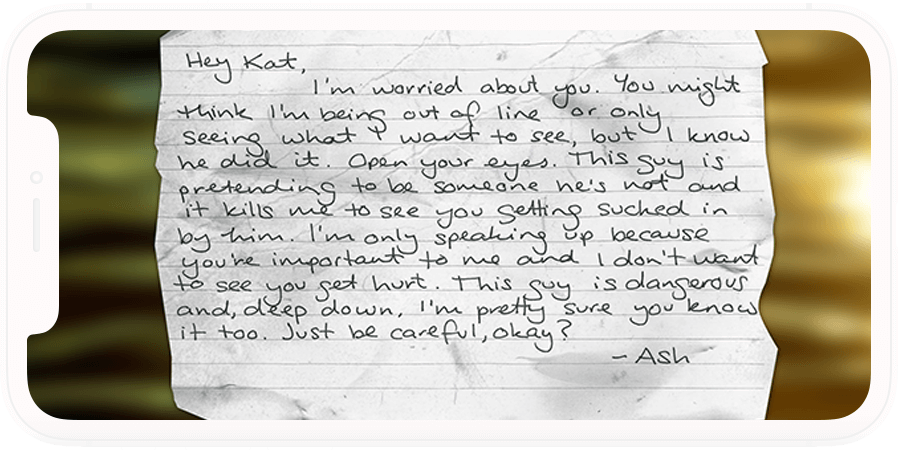 Hey Kat,
I'm worried about you. You might
think I'm being out of line or only
seeing what I want to see, but I know
he did it. Open your eyes. This guy is
pretending to be someone he's not and
it kills me to see you getting sucked in
by him. I'm only speaking up because
you're important to me and I don't want
to see you get hurt. This guy is dangerous
and, deep down, I'm pretty sure you know
it too. Just be careful, okay?
- Ash